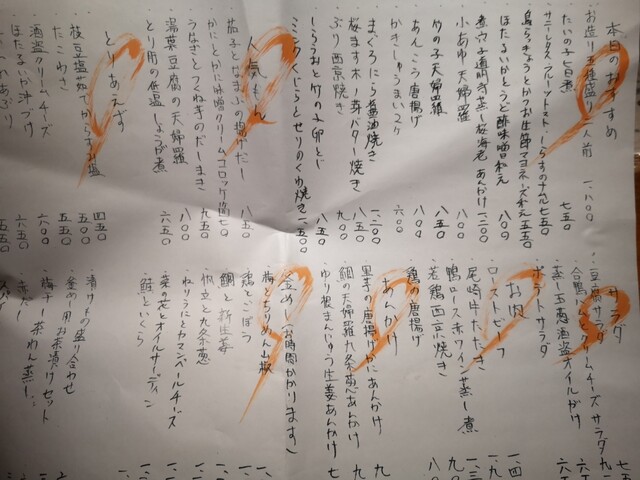 本日のおすすめ
お造り五種盛り 一人前 一、八〇〇
たいの子旨煮 七五〇
サニーレタス・フルーツトマト・しらすのナムル 七五〇
島らっきょうとかつお生節マヨネーズ和え 五五〇
ほたるいかとうど酢味噌和え 八〇〇
煮穴子道明寺蒸し桜海老あんかけ 一、二〇〇
小あゆ天婦羅 八〇〇
竹の子天婦羅 八五〇
あんこう唐揚げ 八〇〇
かきしゅうまい 2ケ 六〇〇
まぐろにら醤油焼き 一、二〇〇
桜ます木ノ芽バター焼き 八五〇
ぶり西京焼き 九〇〇
しらうおと竹の子卵とじ 八五〇
ミンククジラとセリのくわ焼き 一、五〇〇
人気もん
茄子となま小の揚げだし 八〇〇
かにとかに味噌クリームコロッケ 1個 七五〇
うなぎとつくね芋のだしまき 九五〇
湯葉豆腐の天婦羅 八〇〇
とり肝の低温しょうが煮 六五〇
とりあえず
枝豆塩茹でからすみ塩 四五〇
たこわさ 五五〇
酒盗クリームチーズ 五五〇
ほたるいか沖づけ 六〇〇
サラダ
豆腐サラダ
合鴨くんとクリームチーズサラダ
蒸し玉葱酒盗オイルがけ
ポテトサラダ
お肉
ローストビーフ
尾崎牛たたき
鴨ロース赤ワイン蒸し煮
若鶏西京焼き
鶏の唐揚げ
あんかけ
里芋の唐揚げかにあんかけ
鯛の天婦羅九条葱あんかけ
ゆり根まんじゅう生姜あんかけ
釜めし(一時間かかります)
梅とちりめん山椒
鶏とごぼう
鯛と新生姜
帆立と九条葱
ねりうにとカマンベールチーズ
菜の花とオイルサーディン
鮭といくら
漬けもの盛り合わせ
釜めし用お茶漬けセット
梅干し茶わん蒸し
赤だし